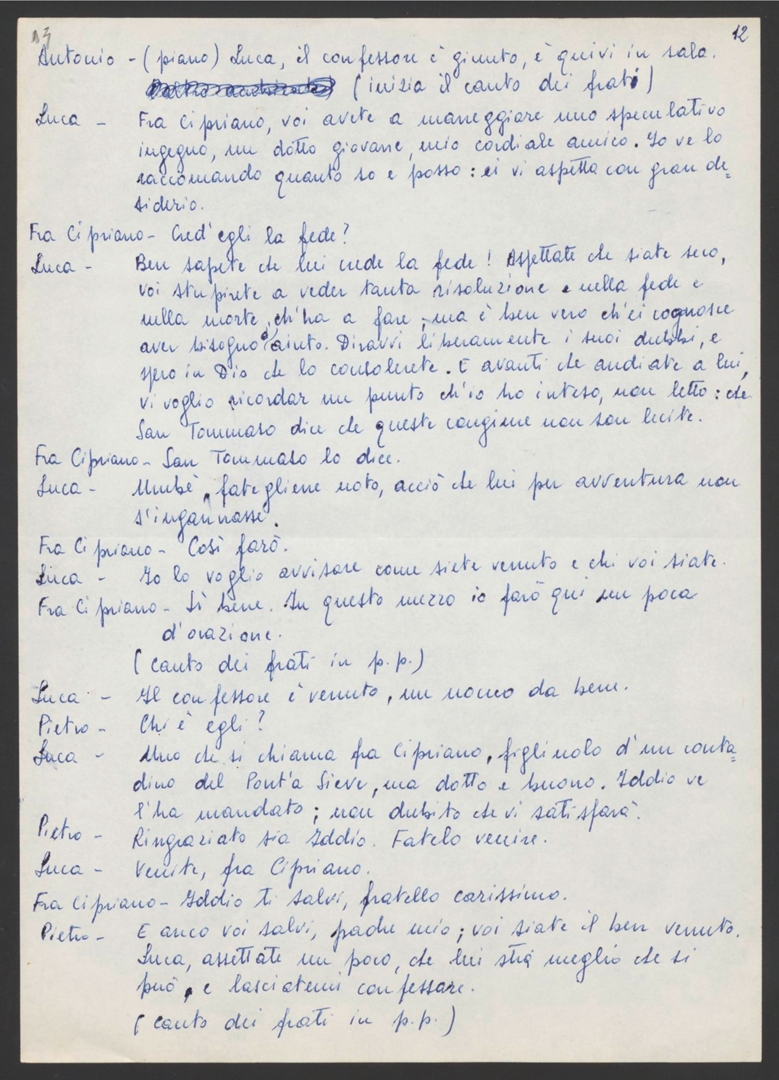 13
12
Antonio - (piano) Luca, il confessore è giunto, è quivi in sala.
(inizia il canto dei frati)
Luca - Fra Cipriano, voi avete a maneggiare uno speculativo
ingegno, un dotto giovane, mio cordiale amico. Io ve lo
raccomando quanto so e posso: ei vi aspetta con gran de=
siderio.
Fra Cipriano - Cred'egli la fede?
Luca - Ben sapete che lui crede la fede! Aspettate che siate seco,
voi stupirete a veder tanta risoluzione e nella fede e
nella morte, ch'ha a fare; ma è ben vero ch'ei cognosce
aver bisogno d'aiuto. Diravvi liberamente i suoi dubbi, e
spero in Dio che lo consolerete. E avanti che andiate a lui,
vi voglio ricordar un punto ch'io ho inteso, non letto: che
San Tommaso dice che queste congiure non son lecite.
Fra Cipriano - San Tommaso lo dice.
Luca - Umbè, fategliene noto, acciò che lui per avventura non
s'ingannasse.
Fra Cipriano - Così farò.
Luca - Io lo voglio avvisare come siete venuto e chi voi siate.
Fra Cipriano - Sì bene. In questo mezzo io farò qui un poca
d'orazione.
(canto dei frati in p.p.)
Luca - Il confessore è venuto, un uomo da bene.
Pietro - Chi è egli?
Luca - Uno che si chiama fra Cipriano, figliuolo d'un conta=
dino del Pont'a Sieve, ma dotto e buono. Iddio ve
l'ha mandato; non dubito che vi satisfarà.
Pietro - Ringraziato sia Iddio. Fatelo venire.
Luca - Venite, fra Cipriano.
Fra Cipriano - Iddio ti salvi, fratello carissimo.
Pietro - E anco voi salvi, padre mio; voi siate il ben venuto.
Luca, assettate un poco, che lui stia meglio che si
può, e lasciatemi confessare.
(canto dei frati in p.p.)